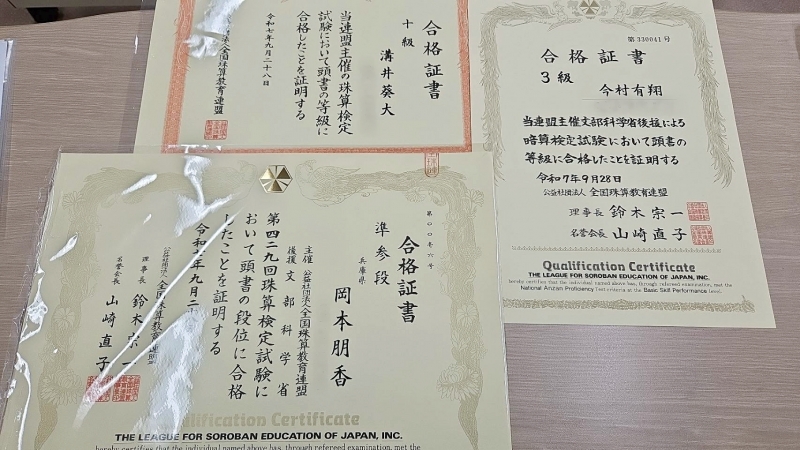 合格証書
十級
溝井葵大
当連盟主催の珠算検定
試験において頭書の等級に
合格したことを証明する
令和七年九月二十八日
全国珠算教育連盟
第330041号
合格証書
3級
今村有翔
当連盟主催文部科学省後援による
暗算検定試験において頭書の
等級に合格したことを証明する
令和7年9月28日
公益社団法人 全国珠算教育連盟
理事長 鈴木宗一
名誉会長 山崎直子
Qualification Certificate
THE LEAGUE FOR SOROBAN EDUCATION OF JAPAN, INC.
hereby certifies that the individual named above has, through refereed examination, met the
National Anzan Proficiency test criteria at the Basic Skill Performance level.
合格証書
準参段
兵庫県
岡本朋香
主催 公益社団法人全国珠算教育連盟
後援 文部科学省
第四二九回珠算検定試験に
おいて頭書の段位に合格
したことを証明する
公益社団法人 全国珠算教育連盟
理事長 鈴木宗一
名誉会長 山崎直子
Qualification Certificate
THE LEAGUE FOR SOROBAN EDUCATION OF JAPAN, INC.
hereby certifies that the individual named above has, through refereed examination, met the